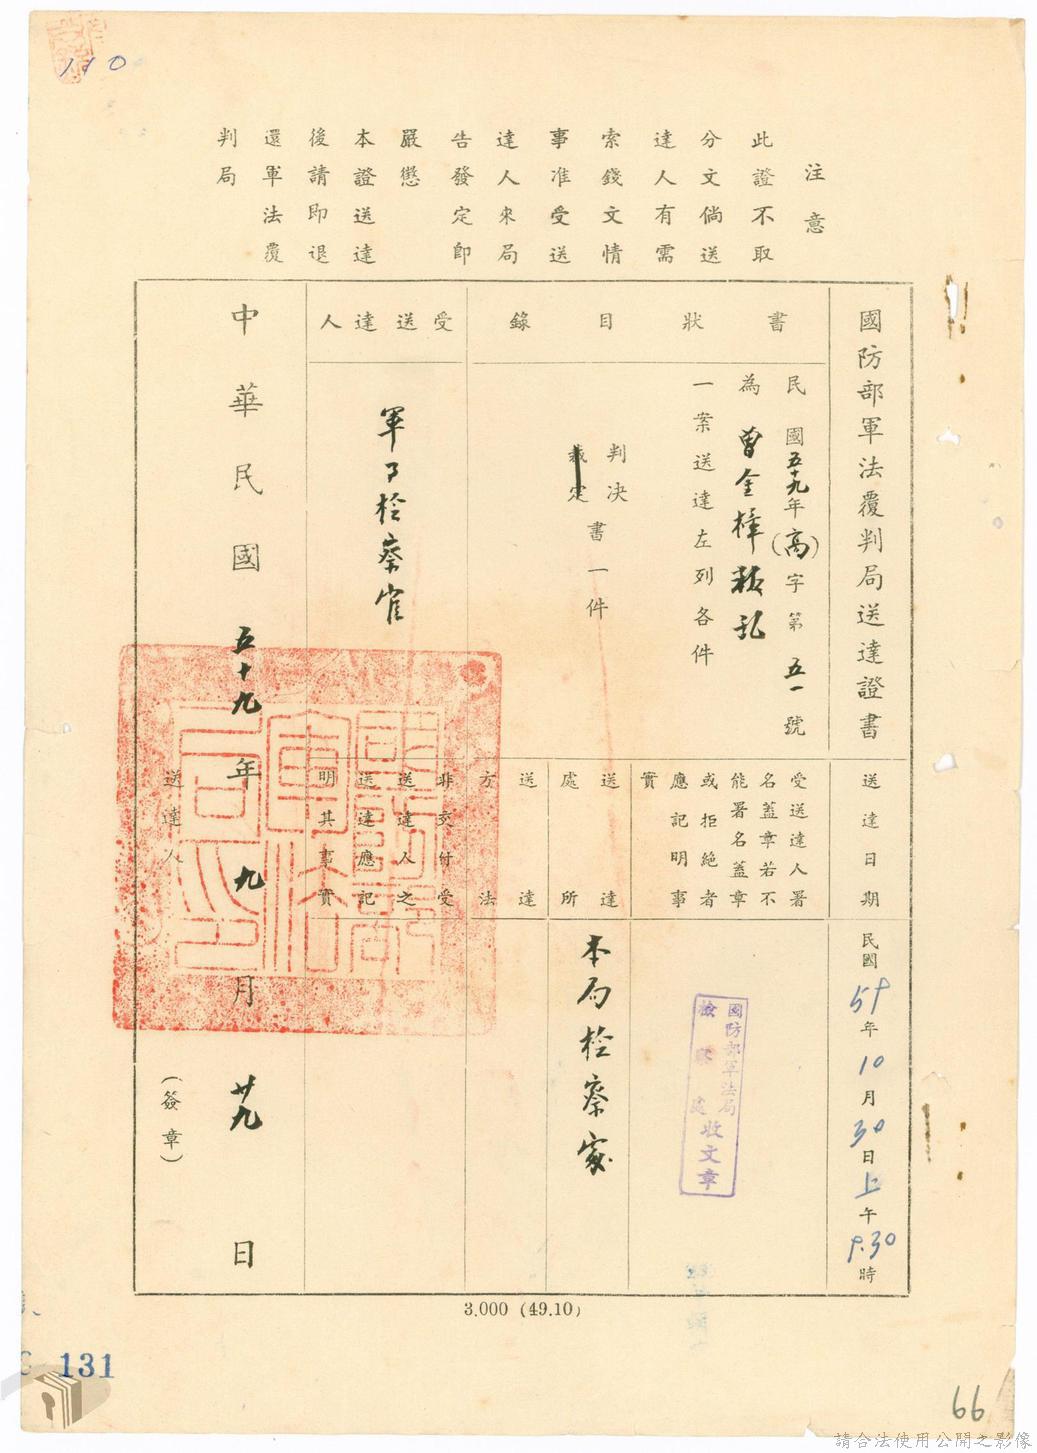 110
注意
此證不取
分文倘送
達人有需
索錢文情
事准受送
達人來局
告發定即
嚴懲
本證送達
後請即退
還軍法覆
判局
國防部軍法覆判局送達證書
書狀目錄
民國五十九年(高)字第五一號
為曾金樟叛乱
一案送達左列各件
判決
裁定
書一件
受送達人
軍事检察官
中華民國五十九年九月廿九日
送達日期
民國59年10月30日上午9.30時
受送達人署
名蓋章若不
能署名蓋章
或拒絕者
應記明事
實
國防部軍法局
檢察處
收文章
送達
處所
本局检察家
送達
方法
非交付受
送達人之
送達應記
明其事實
送達人
(簽章)
3.000 (49.10)
131
66
請合法使用公開之影像